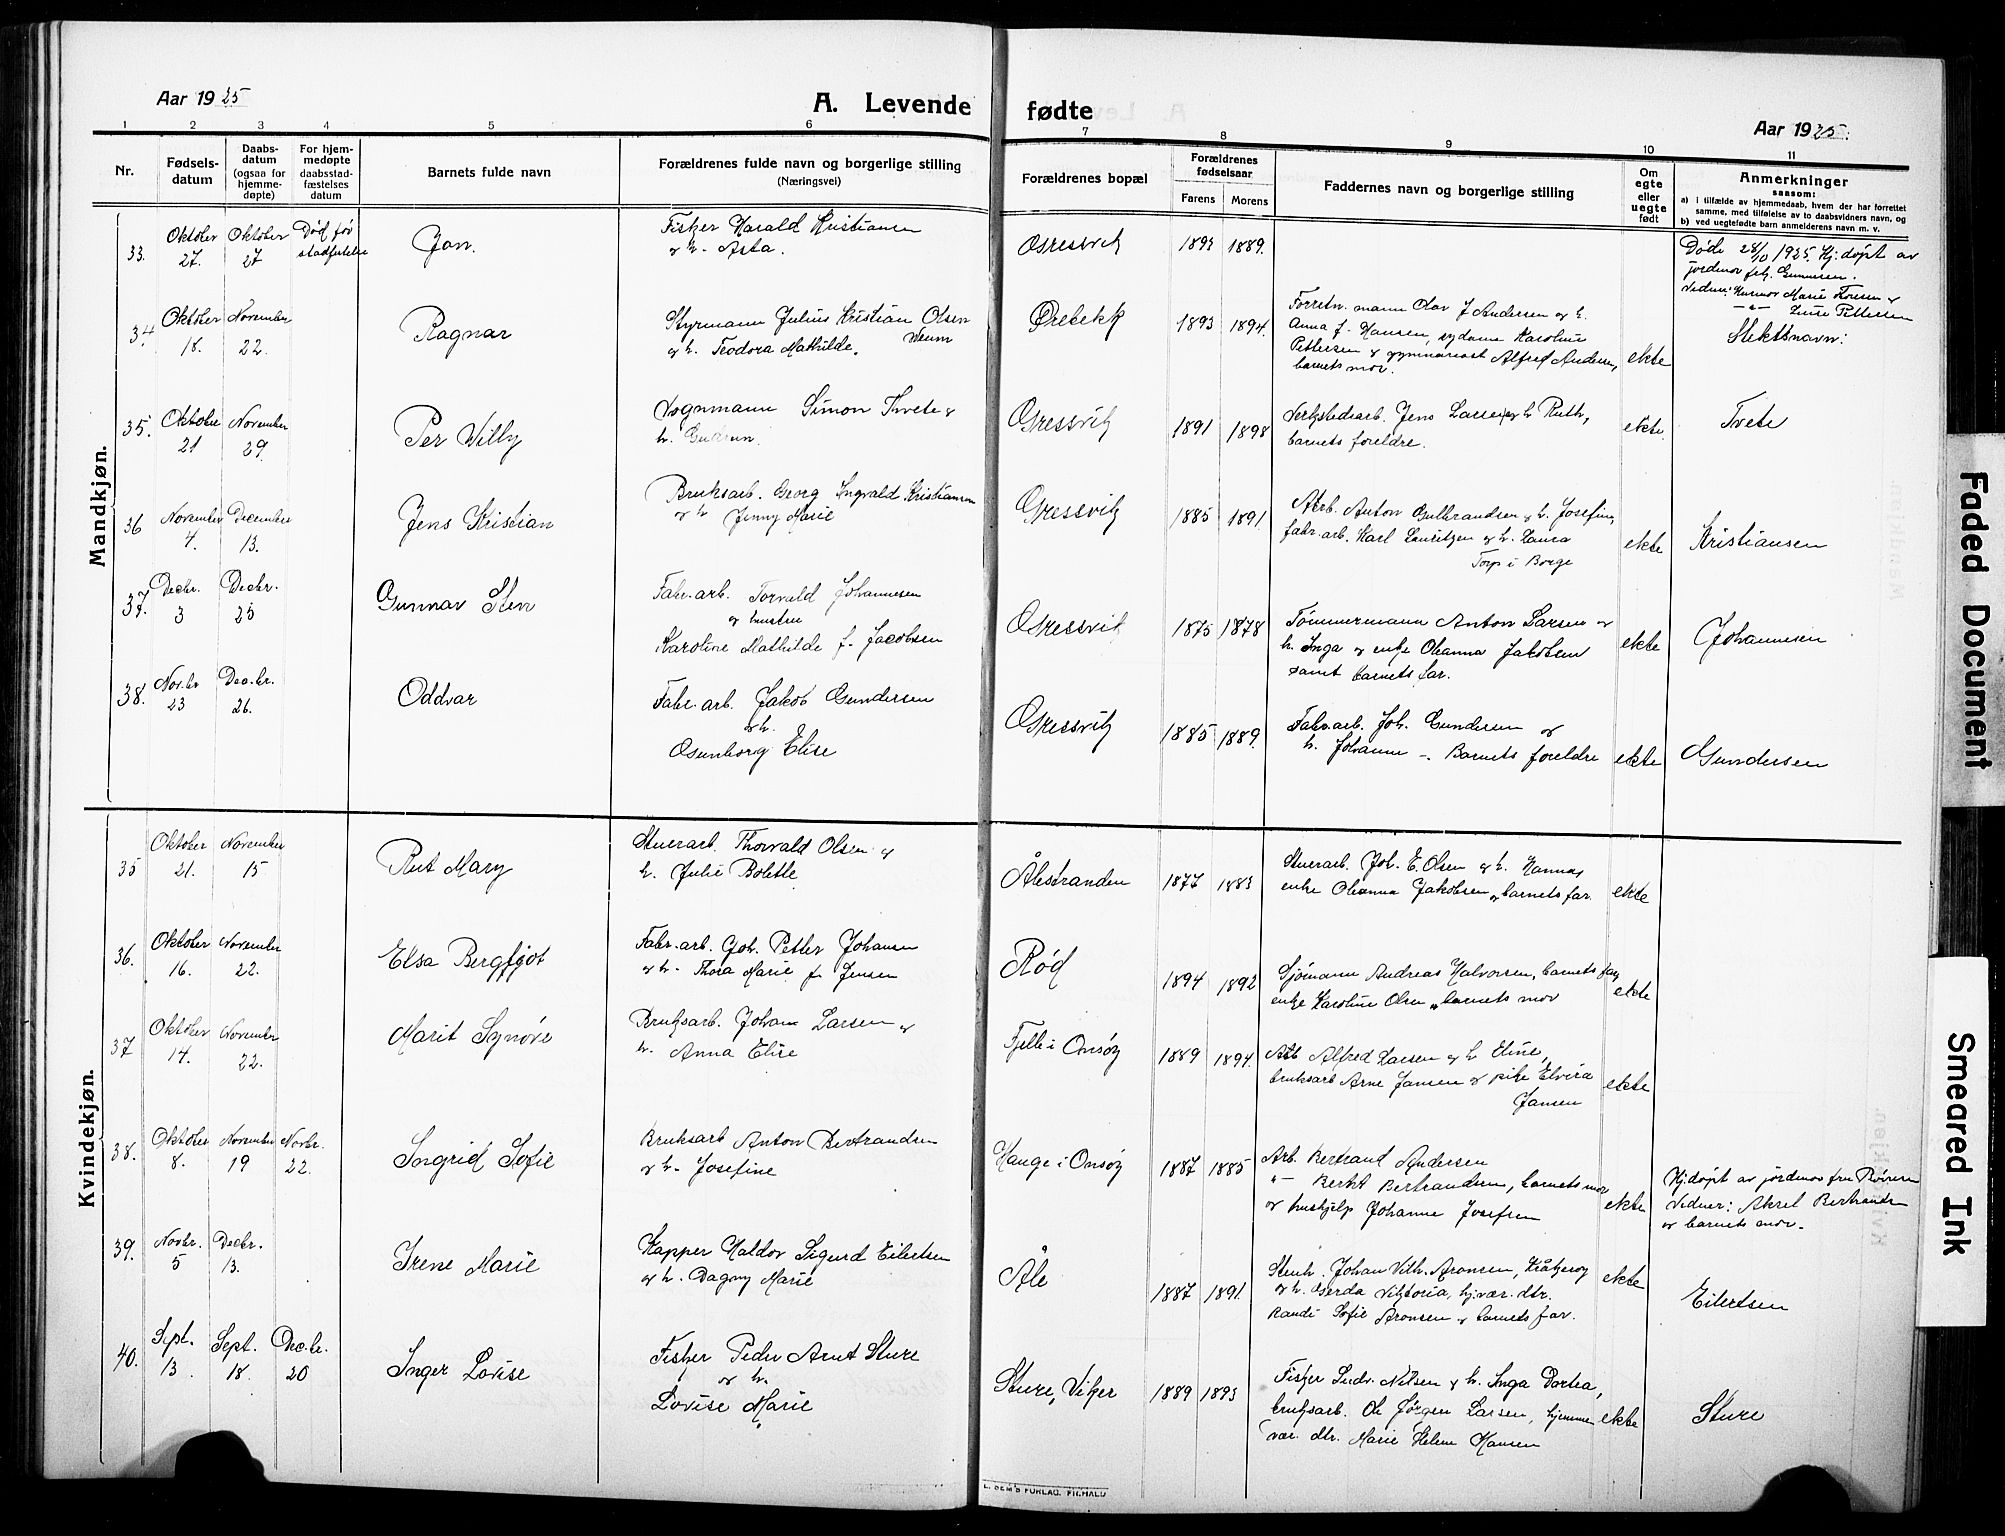 Aar 1925
A. Levende fødte
Aar 1925.
1 2 3 4 5 6 7 8 9 10 11
Nr.
Fødsels-
datum
Daabs-
datum
(ogsaa for
hjemme-
døpte)
For hjem-
medøpte
daabsstad-
fæstelses
datum
Barnets fulde navn
Forældrenes fulde navn og borgerlige stilling
(Næringsvei)
Forældrenes bopæl
Forældrenes
fødselsaar
Farens Morens
Faddernes navn og borgerlige stilling
Om
egte
eller
uegte
født
Anmerkninger
saasom:
a) i tilfælde av hjemmedaab, hvem der har forrettet
samme, med tilføielse av to daabsvidners navn, og
b) ved uegtefødt barn anmelderens navn m. v.
Mandkjøn.
33. Oktober 27. Oktober 27 Død før
Jon.
Fisker Harald Kristiansen
og h. Asta.
Gressvik 1893 1889.
Døde 28/10 1925. Hj.døpt av
jordmor frk. Gunnesen.
34. Oktober 18. November 22.
Ragnar
Styrmann Julius Kristian Olsen
og h. Teodora Mathilde.
Ørebekk 1893 1894.
Forretn. mann Olav J Andersen og h.
Anna f. Hansen, sydame Karoline
Pettersen og gymnasiast Alfred Andersen,
barnets mor.
ekte
Slektsnavn:
35. Oktober 21 November 29.
Per Willy
Vognmann Simon Tvete og
h. Gudrun.
Gressvik 1891 1898
Verkstedsarb. Jens Larsen og h Ruth,
barnets foreldre.
ekte.
Tvete
36 November 4. Decembre 13.
Jens Kristian
Bruksarb. Georg Ingvald Kristiansen
og h Jenny Marie
Gressvik 1885 1891
Arb. Anton Gulbrandsen og h. Josefine,
fabr.arb. Karl Lauritzen og h. Laura
Torp i Borge
ekte
Kristiansen
37. Decbr. 3 Decbr. 25
Gunnar Sten
Fabr.arb. Torvald Johannesen
og hustru
Karoline Mathilde f. Jacobsen
Gressvik 1875 1878
Tømmermann Anton Larsen og
h. Inga og enke Oleanna Jakobsen
samt barnets far.
ekte
Johannesen
38. Nov.br 23 Decbr. 26.
Oddvar
Fabr.arb. Jakob Gundersen
og h.
Gunborg Elise
Gressvik 1885 1889.
Fabr.arb. Joh. Gundersen og
h. Johanne -. Barnets foreldre
ekte
Gundersen
Kvindekjøn.
35 Oktober 21. November 15
Rut Mary
Stuerarb. Thorvald Olsen og
h. Julie Bolette
Ålestranden 1877 1883
Stuerarb. Joh. E. Olsen og h. Hanna,
enke Oleanna Jakobsen, og barnets far.
ekte
36. Oktober 16. November 22.
Elsa Bergfjot
Fabr.arb. Joh. Petter Johansen
og h. Thora Marie f. Jensen
Rød 1894 1892
Sjømann Andreas Halvorsen, barnets far,
enke Karoline Olsen, barnets mor
ekte
37 Oktober 14. November 22.
Marit Synøve
Bruksarb. Johan Larsen og
h. Anna Elise
Fjelle i Onsøy 1889 1894.
Arb Alfred Larsen og h Eline,
bruksarb Arne Jansen og pike Elvira
Jansen
ekte
38. Oktober 8. November 19 Novbr. 22.
Ingrid Sofie
Bruksarb Anton Bertrandsen
og h. Josefine
Hauge i Onsøy 1887 1885
Arb. Bertrand Andersen
" - Berht Bertrandsen, barnets mor
og hushjelp Johanne Josefsen
ekte
Hj.døpt av jordmor fru Børresen
Vidner: Aksel Bertrandsen
og barnets mor.
39. Novbr. 5 Decbr. 13.
Irene Marie
Kapper Haldor Sigurd Eilertsen
og h. Dagny Marie
Åle 1887 1891.
Stenh. Johan Vilh. Aronsen, Kråkerøy
og h. Gerda Viktoria, hj.vær. dtr.
Randi Sofie Aronsen og barnets far.
ekte
Eilertsen
40. Sept. 13 Sept. 18. Dec.br. 20
Inger Lovise
Fisker Peder Arnt Sture
og h.
Lovise Marie
Sture, Viker 1889 1893
Fisker Ludv. Nilsen og h. Inga Dortea,
bruksarb. Ole Jørgen Larsen, hjemme-
vær. dtr. Marie Helene Hansen
ekte
Sture
Faded Document
Smeared Ink